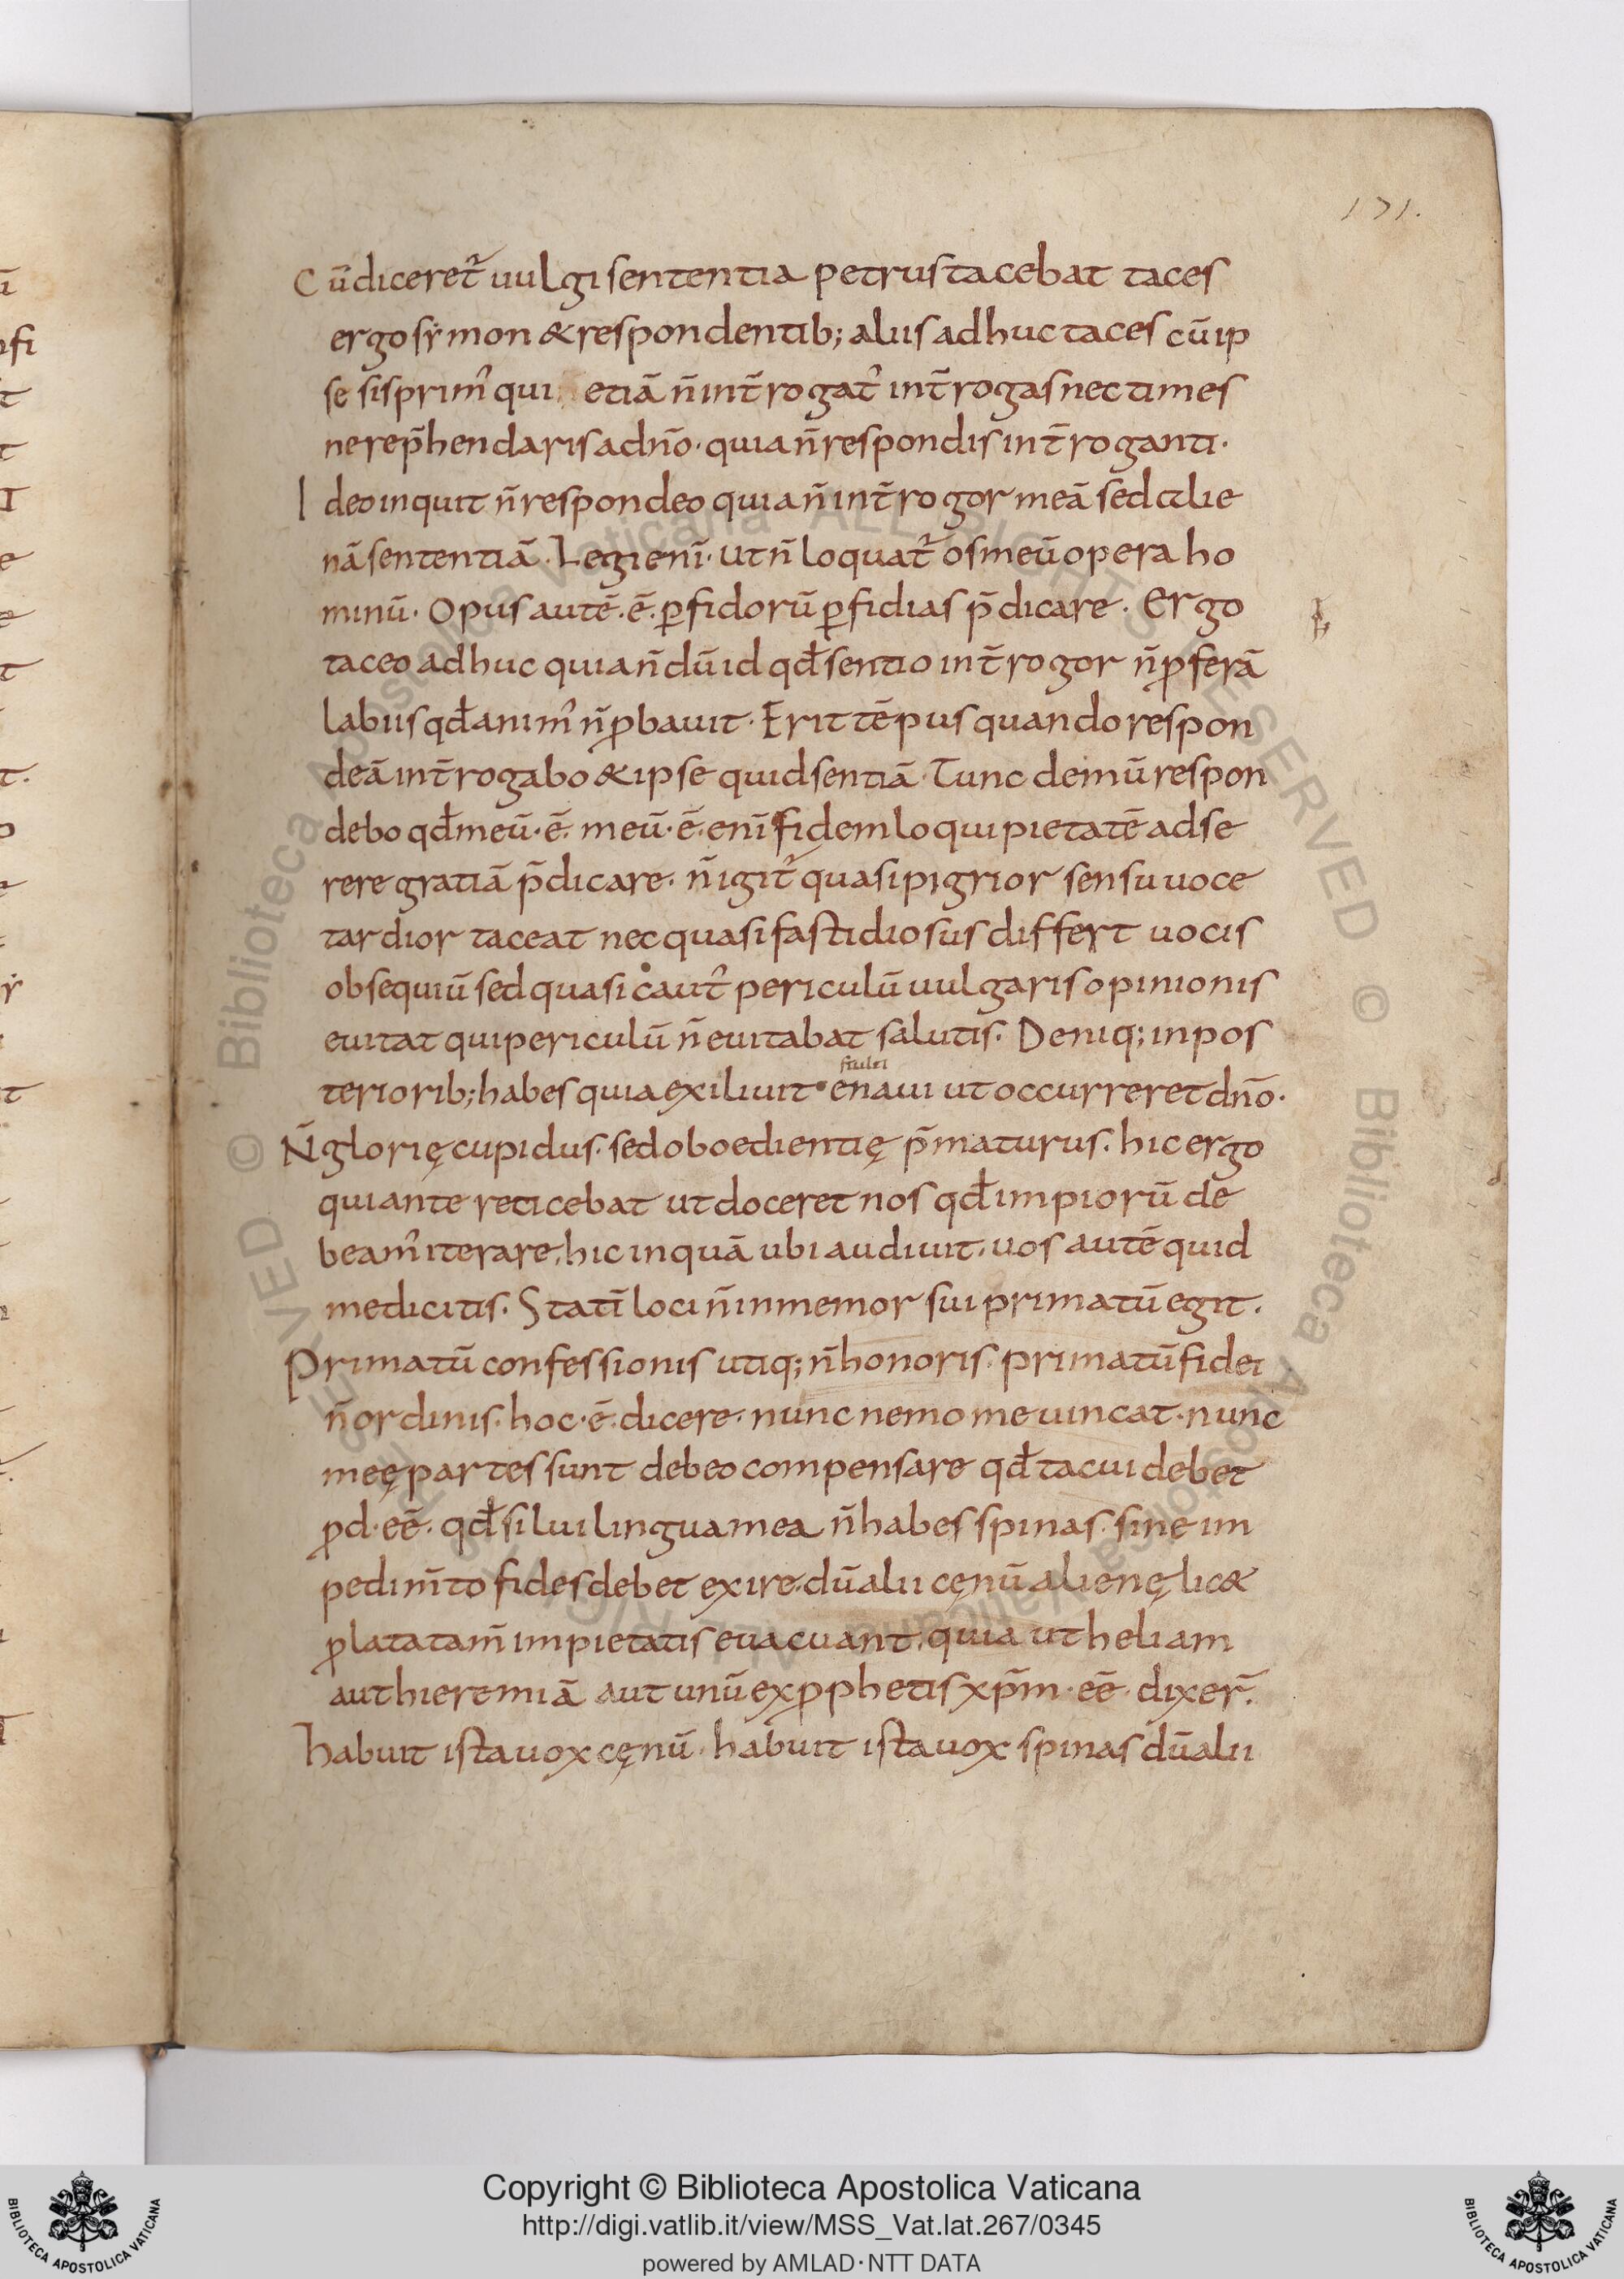 171.
Cū diceret᷒ uulgi sententia petrus tacebat taces
ergo sẏmon & respondentib; aliis adhuc taces cū ip
se sis prim᷒ qui etiā n̄ int̄rogat᷒ int̄rogas nec times
ne rep̄hendaris a dn̄o · quia n̄ respondis int̄roganti ·
Ideo inquit n̄ respondeo quia n̄ int̄rogor meā sed alie
nā sententiā · Legi enī · ut n̄ loquat᷒ os meū opera ho
minū · Opus autē · ē · ꝑfidorū ꝑfidias p̄dicare · Ergo
taceo adhuc quia n̄dū id qd̄ sentio int̄rogor n̄ ꝓferā
labiis qd̄ anim᷒ n̄ ꝓbauit · Erit tēpus quando respon
deā int̄rogabo & ipse quid sentiā · Tunc demū respon
debo qd̄ meū · ē · meū · ē · enī fidem loqui pietatē adse
rere gratiā p̄dicare · n̄ igit᷒ quasi pigrior sensu uoce
tardior taceat nec quasi fastidiosus differt uocis
obsequiū sed quasi caut᷒ periculū uulgaris opinionis
euitat qui periculū n̄ euitabat salutis · Deniq; in pos
teriorib; habes quia exiliuit enaui ut occurreret dn̄o ·
N̄ glorię cupidus · sed oboedientię p̄maturus · hic ergo
qui ante reticebat ut doceret nos qd̄ impiorū de
beam᷒ iterare, hic inquā ubi audiuit · uos autē quid
me dicitis · Statī loci n̄ inmemor sui primatū egit ·
Primatū confessionis utiq; n̄ honoris · primatū fidei
n̄ ordinis · hoc · ē · dicere · nunc nemo me uincat · nunc
meę partes sunt debeo compensare qd̄ tacui debet
ꝓd · eē · qd̄ silui lingua mea n̄ habes spinas · sine im
pedim̄to fides debet exire · dū alii cęnū alienę lic&
ꝓlatatam̄ impietatis euacuant, quia ut heliam
aut hieremiā aut unū ex ꝓphetis xp̄m · eē · dixer̄ ·
habuit ista uox cęnū · habuit ista uox spinas dū alii
Copyright © Biblioteca Apostolica Vaticana
http://digi.vatlib.it/view/MSS_Vat.lat.267/0345
powered by AMLAD · NTT DATA